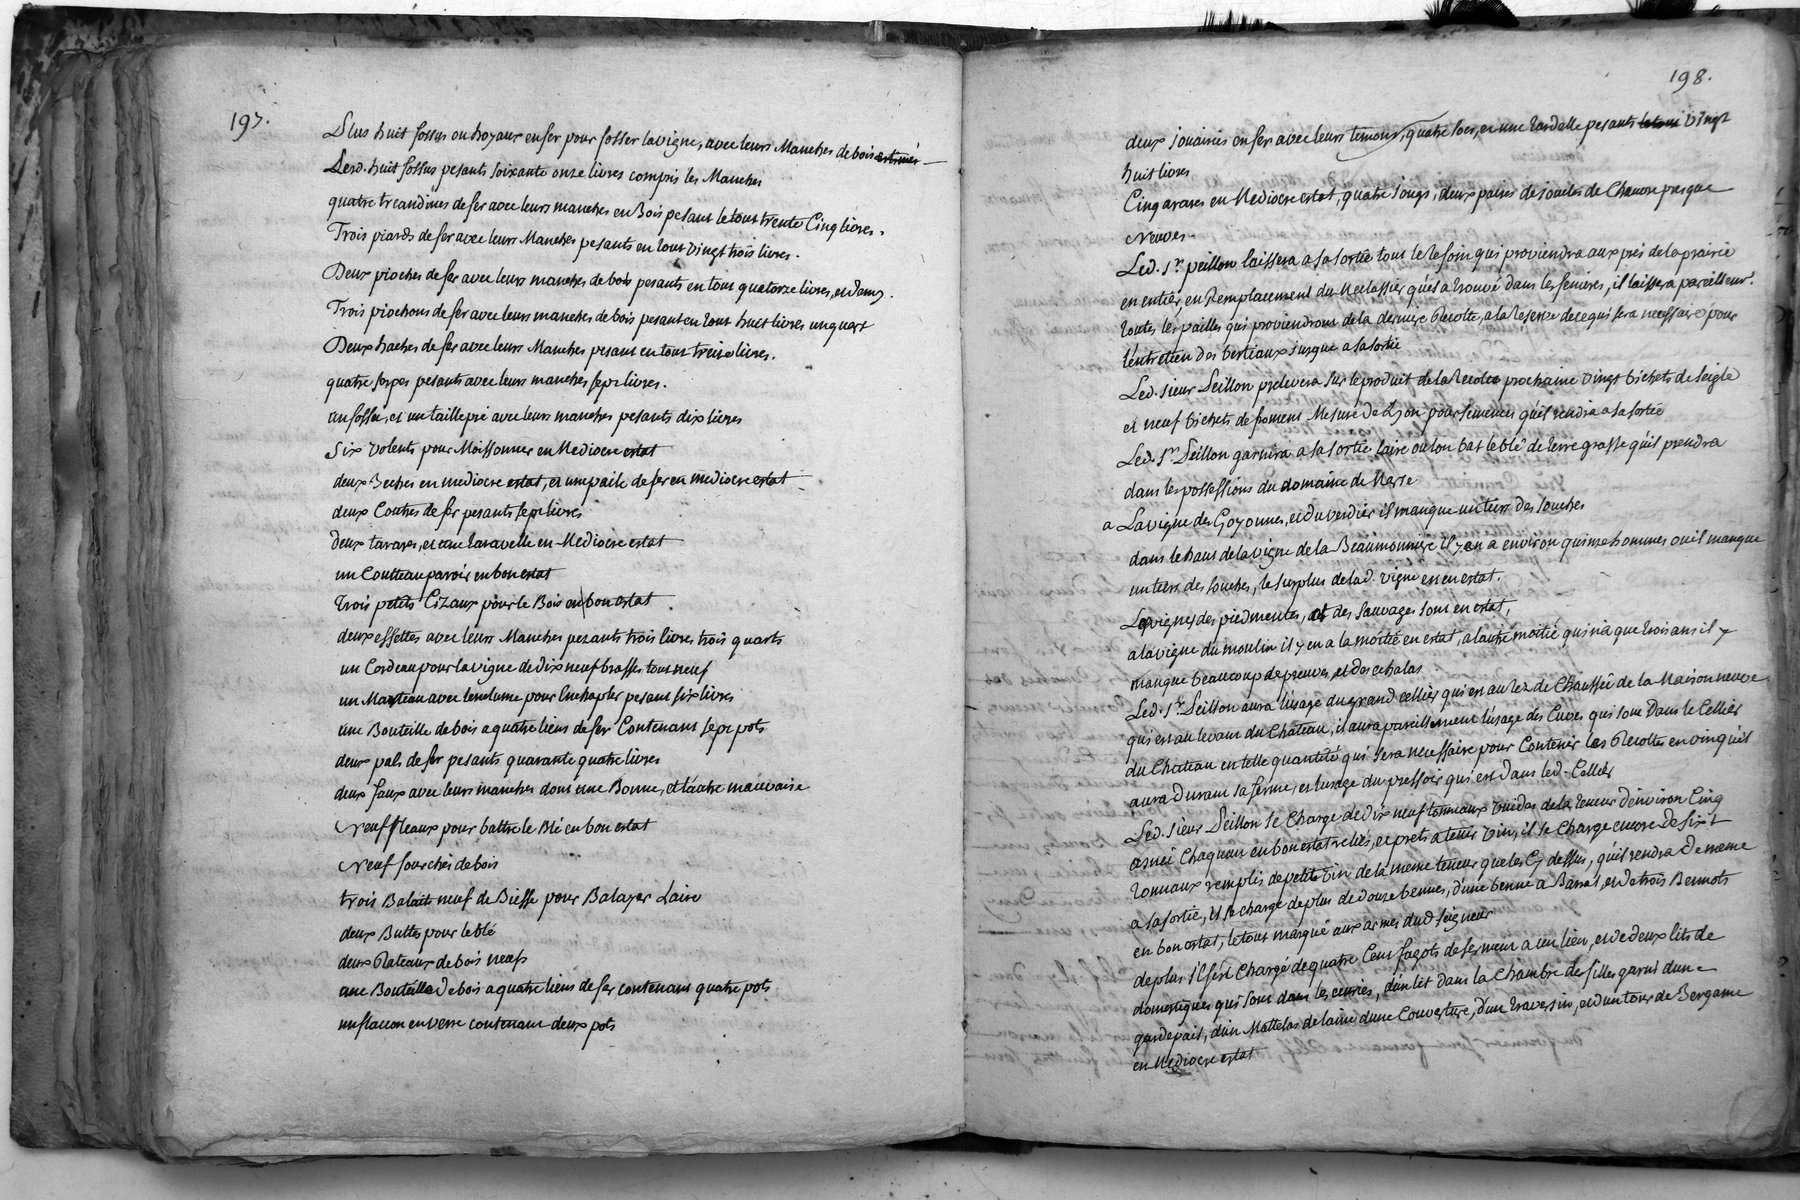 197.
Plus huit fossus ou hoyaux en fer pour fosser la vigne, avec leurs Manches de bois estimés
Lesd. huit fossus pesants soixante onze livres compris les Manches
quatre treandines de fer avec leurs manches en Bois pesant le tout trente Cinq livres.
Trois piards de fer avec leurs Manches pesants en tout vingt trois livres.
Deux pioches de fer avec leurs manches de bois pesants en tout quatorze livres, et demy.
Trois piochons de fer avec leurs manches de bois pesant en tout huit livres un quart
Deux haches de fer avec leurs Manches pesant en tout treize livres.
quatre serpes pesants avec leurs manches sept livres.
un fossu, et un taillepré avec leurs manches pesants dix livres
Six volents pour Moissonner en Mediocre estat
deux Beches en mediocre estat, et une paile de fer en mediocre estat
deux Coutres de fer pesants sept livres
deux tarares, et une taravelle en Mediocre estat
un Coutteau paroir en bon estat
trois petits Cizaux pour le Bois en bon estat
deux essettes avec leurs Manches pezants trois livres trois quarts
un Cordeau pour la vigne de dix neuf brasses tout neuf
un Marteau avec l'enclume pour Enchapler pesant six livres
une Bouteille de bois a quatre liens de fer Contenant sept pots
deux pals de fer pesants quarante quatre livres
deux faux avec leurs manches dont une Bonne, et l'autre mauvaise
Neuf fleaux pour battre le Blé en bon estat
Neuf fourches de bois
trois Balais neuf de Biesse pour Balayer Laire
deux Buttes pour le blé
deux Rateaux de bois neufs
une Bouteille de bois a quatre liens de fer contenant quatre pots
un flacon en verre contenant deux pots
198.
deux jouairies en fer avec leurs temoux, quatre soes, et une tardelle pesants le tout vingt
huit livres
Cinq arares en Mediocre estat, quatre jougs, deux paires de joucles de Chanon presque
Neuves
Led. Sr. peillon laissera a sa sortie tout le Refoin qui proviendra aux prés de la prairie
en entier, en Remplacement du qu'il a trouvé dans les fenieres, il laissera pareillemt.
toutes les pailles qui proviendront de la derniere Recolte, a la reserve de ce qui sera necessaire pour
l'entretien des bestiaux jusque a sa sortie
Led. sieur Peillon prelevera sur le produit de la Recolte prochaine vingt bichets de seigle
et neuf bichets de froment Mesure de Lyon pour semences qu'il rendra a sa sortie
Led. Sr. Peillon garnira a sa sortie laire ou lon bat le blé de terre grasse qu'il prendra
dans les possessions du domaine de Narse
a La vigne des Goyonnes, et du verdier il manque un tiers des souches
dans le haut de la vigne de la Beaumonniere il y en a environ quinze hommes ou il manque
un tiers des souches, le surplus de lad. vigne est en estat.
Les vignes des piedmentes, et des sauvages sont en estat,
a la vigne du moulin il y en a la moitié en estat, a l'autre moitié qui n'a que trois ans il y
manque beaucoup de preuves, et des echalas
Led. Sr. Peillon aura l'usage du grand cellier qui est au Rez de Chaussée de la Maison neuve
qui est au levant du Chateau, il aura pareillement l'usage des Cuves qui sont Dans le Cellier
du Chateau en telle quantité qui sera necessaire pour Contenir les Recoltes en vin qu'il
aura Durant sa ferme, et l'usage du pressoir qui est Dans led. Cellier
Led. sieur Peillon se Charge de dix neuf tonneaux vuides de la teneur d'environ Cinq
asnées Chaqu'un en bon estat reliés, et prets a tenir vin, il se Charge encore de sixt
tonneaux remplis de petit vin de la meme teneur que les Cy dessus, qu'il rendra de meme
a sa sortie, il se charge de plus de douze bennes, d'une benne a Barral, et de trois Bennots
en bon estat, le tout marqué aux armes dud. seigneur
de plus il s'est Chargé de quatre Cent fagots de serment a un lien, et de deux lits de
domestiques qui sont dans les ecuries, d'un lit dans la Chambre des filles garni d'une
gardepail, d'un Mattelas de laine d'une Couverture, d'un traversin, et d'un tour de Bergame
en Mediocre estat